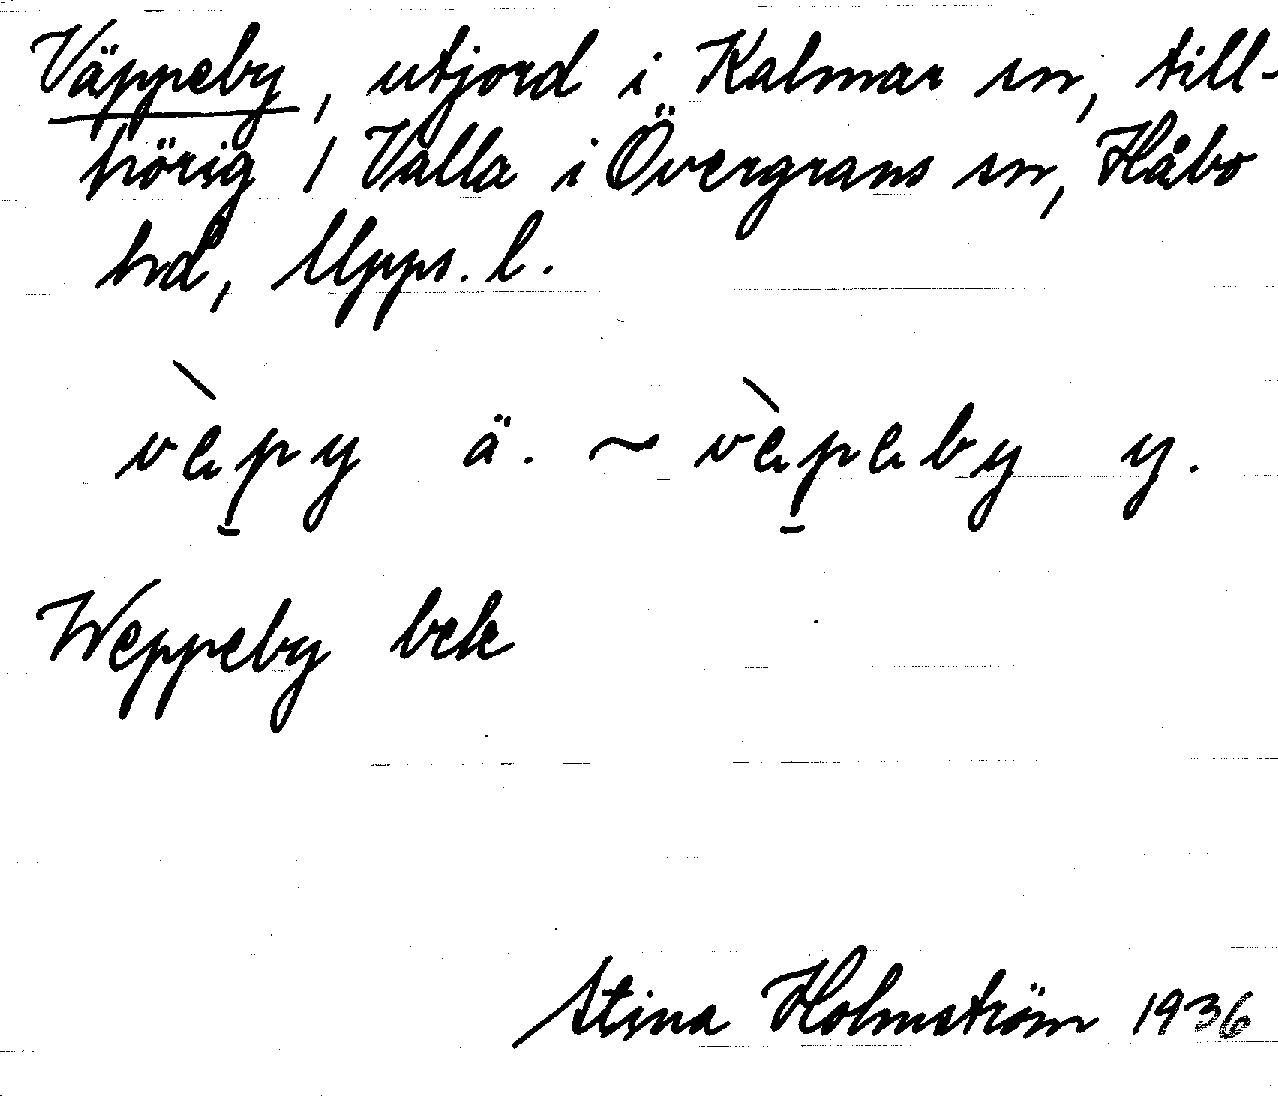 Väppeby, utjord i Kalmar sn, till-
hörig 1 Valla i Övergrans sn, Håbo
hd, Upps. l.
vèpy ä. ~ vèpeby y.
Weppeby bek
Stina Holmström 1936